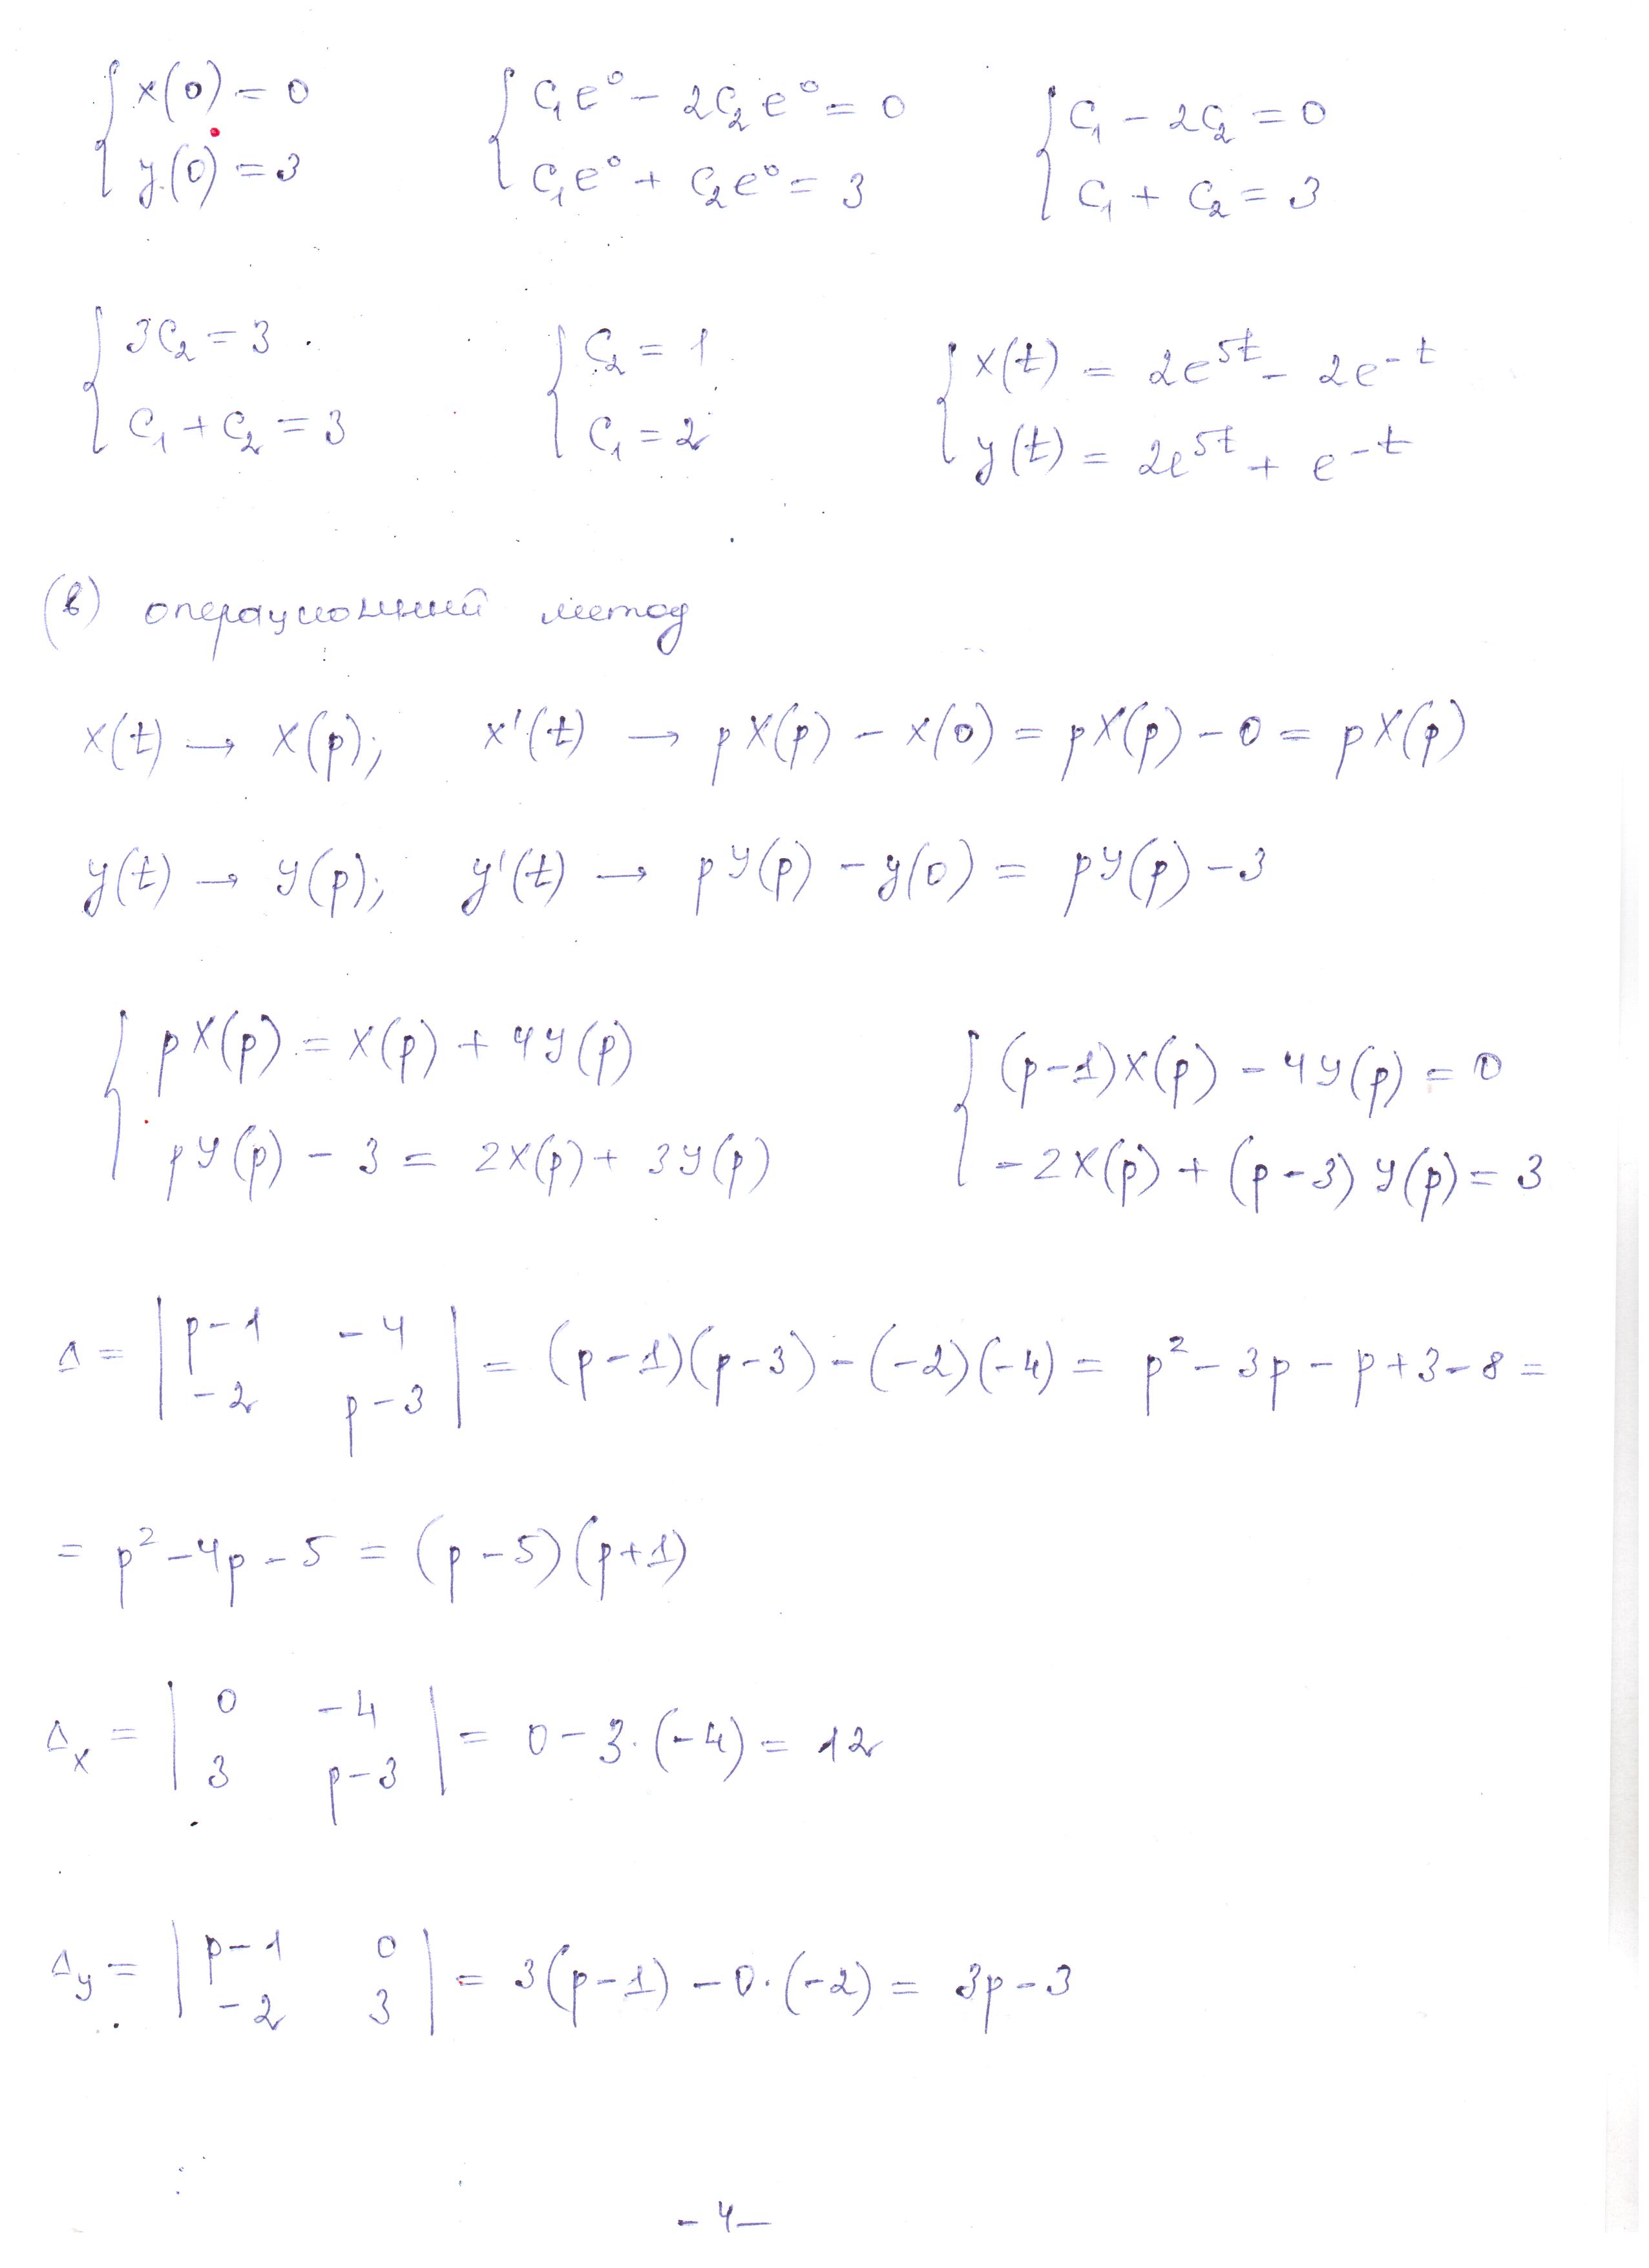 { x(0) = 0   { C₁e⁰ - 2C₂e⁰ = 0   { C₁ - 2C₂ = 0
y(0) = 3   C₁e⁰ + C₂e⁰ = 3   C₁ + C₂ = 3
{ 3C₂ = 3   { C₂ = 1   { x(t) = 2e^{5t} - 2e^{-t}
C₁ + C₂ = 3   C₁ = 2   y(t) = 2e^{5t} + e^{-t}
(в) операционный метод
x(t) → X(p);   x'(t) → pX(p) - x(0) = pX(p) - 0 = pX(p)
y(t) → Y(p);   y'(t) → pY(p) - y(0) = pY(p) - 3
{ pX(p) = X(p) + 4Y(p)   { (p-1)X(p) - 4Y(p) = 0
pY(p) - 3 = 2X(p) + 3Y(p)   -2X(p) + (p-3)Y(p) = 3
Δ = | p-1   -4 |
| -2   p-3 | = (p-1)(p-3) - (-2)(-4) = p² - 3p - p + 3 - 8 =
= p² - 4p - 5 = (p-5)(p+1)
Δx = | 0   -4 |
| 3   p-3 | = 0 - 3·(-4) = 12
Δy = | p-1   0 |
| -2   3 | = 3(p-1) - 0·(-2) = 3p - 3
- 4 -